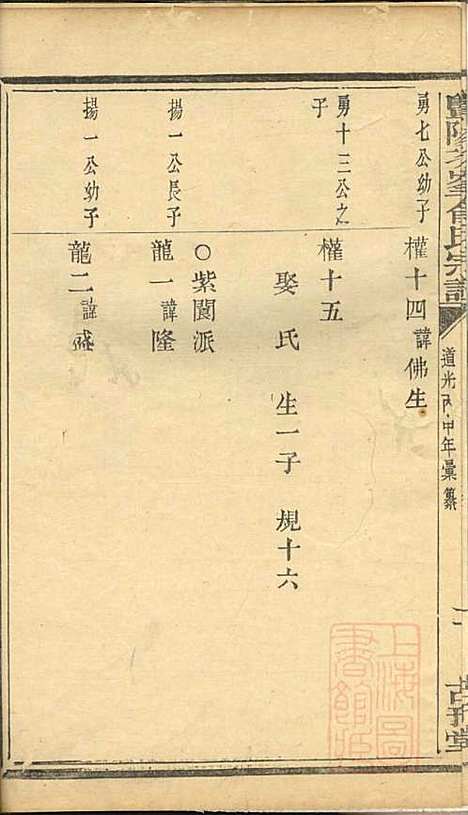 勇七公幼子
權十四諱佛生
勇十三公之子
權十五
娶氏 生一子 規十六
○紫閬派
揚一公長子
龍一諱隆
揚一公幼子
龍二諱盛
俞氏宗譜
道光丙申年彙纂
上海圖書館